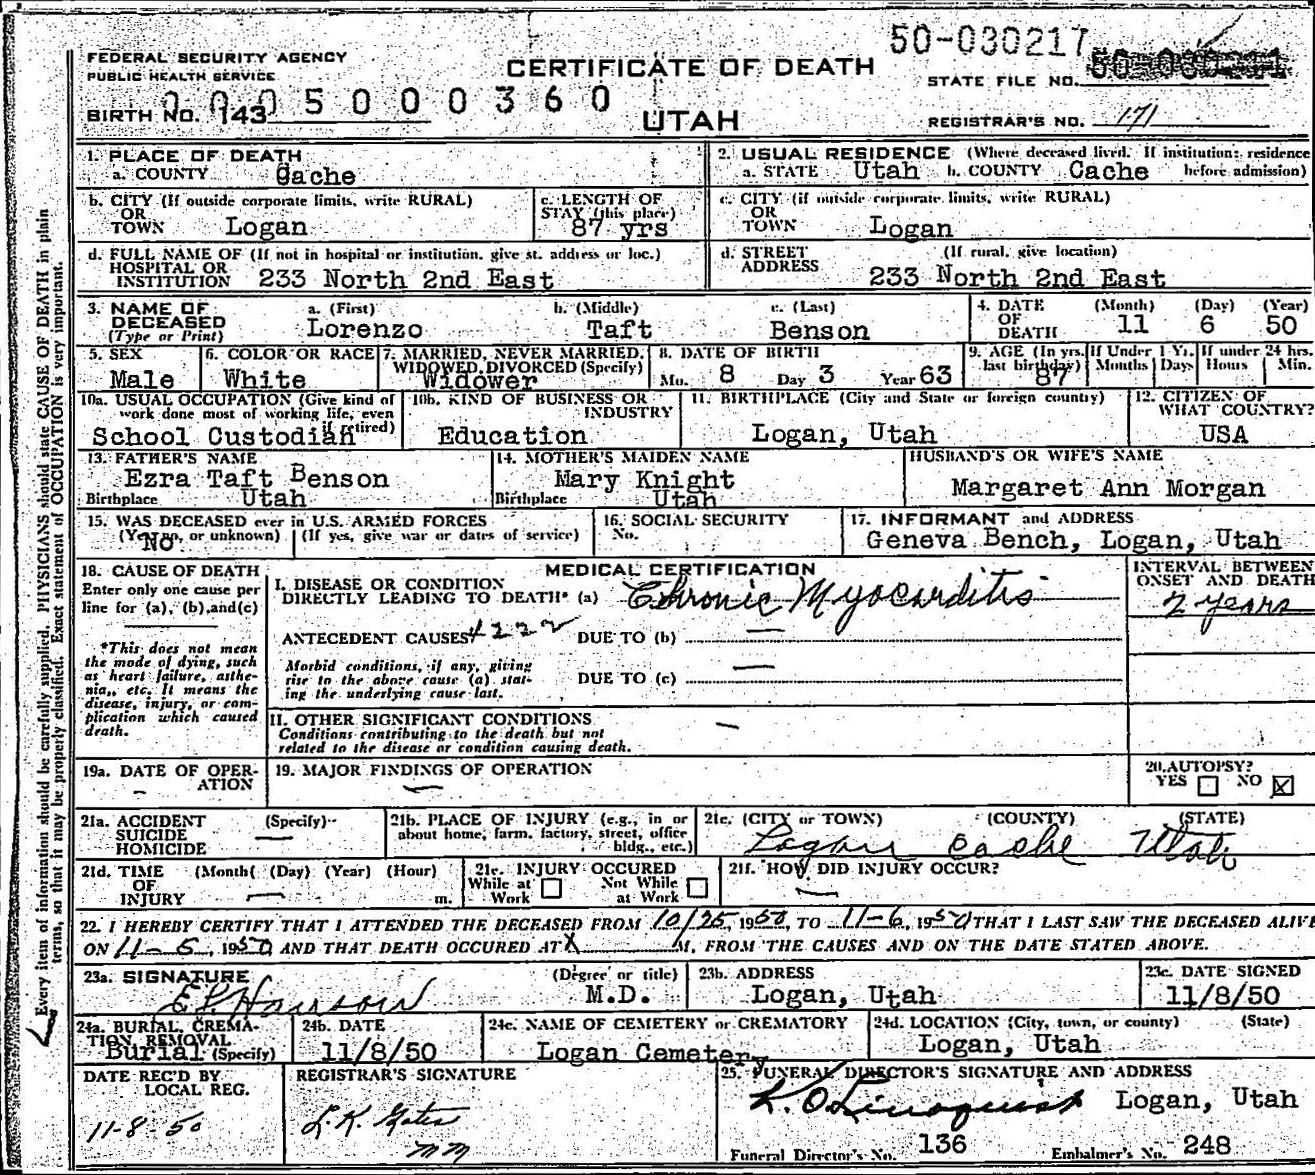 50-030217
FEDERAL SECURITY AGENCY
PUBLIC HEALTH SERVICE
CERTIFICATE OF DEATH
STATE FILE NO.
0005000360
BIRTH NO. 143
UTAH
REGISTRAR'S NO. 171
Every item of information should be carefully supplied. PHYSICIANS should state CAUSE OF DEATH in plain
terms, so that it may be properly classified. Exact statement of OCCUPATION is very important.
1. PLACE OF DEATH
a. COUNTY Cache
2. USUAL RESIDENCE (Where deceased lived. If institution: residence
a. STATE Utah b. COUNTY Cache before admission)
b. CITY (If outside corporate limits, write RURAL)
OR
TOWN Logan
c. LENGTH OF
STAY (this place)
87 yrs
c. CITY (if outside corporate limits, write RURAL)
OR
TOWN Logan
d. FULL NAME OF (If not in hospital or institution, give st. address or loc.)
HOSPITAL OR
INSTITUTION 233 North 2nd East
d. STREET (If rural, give location)
ADDRESS 233 North 2nd East
3. NAME OF DECEASED
(Type or Print)
a. (First) Lorenzo
b. (Middle) Taft
c. (Last) Benson
4. DATE OF DEATH
(Month) (Day) (Year)
11 6 50
5. SEX
Male
6. COLOR OR RACE
White
7. MARRIED, NEVER MARRIED,
WIDOWED, DIVORCED (Specify)
Widower
8. DATE OF BIRTH
Mo. 8 Day 3 Year 63
9. AGE (In yrs. last birthday)
87
If Under 1 Yr.
Months Days
If under 24 hrs.
Hours Min.
10a. USUAL OCCUPATION (Give kind of
work done most of working life, even
if retired)
School Custodian
10b. KIND OF BUSINESS OR
INDUSTRY
Education
11. BIRTHPLACE (City and State or foreign country)
Logan, Utah
12. CITIZEN OF
WHAT COUNTRY?
USA
13. FATHER'S NAME
Ezra Taft Benson
Birthplace Utah
14. MOTHER'S MAIDEN NAME
Mary Knight
Birthplace Utah
HUSBAND'S OR WIFE'S NAME
Margaret Ann Morgan
15. WAS DECEASED ever in U.S. ARMED FORCES
(Yes, no, or unknown) (If yes, give war or dates of service)
No
16. SOCIAL SECURITY
No.
17. INFORMANT and ADDRESS
Geneva Bench, Logan, Utah
18. CAUSE OF DEATH
Enter only one cause per
line for (a), (b), and (c)
*This does not mean
the mode of dying, such
as heart failure, asthe-
nia, etc. It means the
disease, injury, or com-
plication which caused
death.
MEDICAL CERTIFICATION
I. DISEASE OR CONDITION
DIRECTLY LEADING TO DEATH* (a) Chronic Myocarditis
ANTECEDENT CAUSES 4222 DUE TO (b) —
Morbid conditions, if any, giving
rise to the above cause (a) stat-
ing the underlying cause last.
DUE TO (c) —
II. OTHER SIGNIFICANT CONDITIONS —
Conditions contributing to the death but not
related to the disease or condition causing death.
INTERVAL BETWEEN
ONSET AND DEATH
2 years
19a. DATE OF OPER-
ATION
-
19. MAJOR FINDINGS OF OPERATION
—
20. AUTOPSY?
YES ☐ NO ☒
21a. ACCIDENT (Specify)
SUICIDE —
HOMICIDE
21b. PLACE OF INJURY (e.g., in or
about home, farm, factory, street, office
bldg., etc.)
21c. (CITY or TOWN) (COUNTY) (STATE)
Logan Cache Utah
21d. TIME (Month) (Day) (Year) (Hour)
OF
INJURY — m.
21e. INJURY OCCURED
While at Work ☐ Not While at Work ☐
21f. HOW DID INJURY OCCUR?
—
22. I HEREBY CERTIFY THAT I ATTENDED THE DECEASED FROM 10/25, 1950, TO 11-6, 1950 THAT I LAST SAW THE DECEASED ALIVE
ON 11-5, 1950, AND THAT DEATH OCCURED AT X M. FROM THE CAUSES AND ON THE DATE STATED ABOVE.
23a. SIGNATURE (Degree or title)
M.D.
23b. ADDRESS
Logan, Utah
23c. DATE SIGNED
11/8/50
24a. BURIAL, CREMA-
TION, REMOVAL
Burial (Specify)
24b. DATE
11/8/50
24c. NAME OF CEMETERY or CREMATORY
Logan Cemetery
24d. LOCATION (City, town, or county) (State)
Logan, Utah
DATE REC'D BY
LOCAL REG.
11-8-50
REGISTRAR'S SIGNATURE
L.K. Gates
MM
25. FUNERAL DIRECTOR'S SIGNATURE AND ADDRESS
Logan, Utah
Funeral Director's No. 136 Embalmer's No. 248